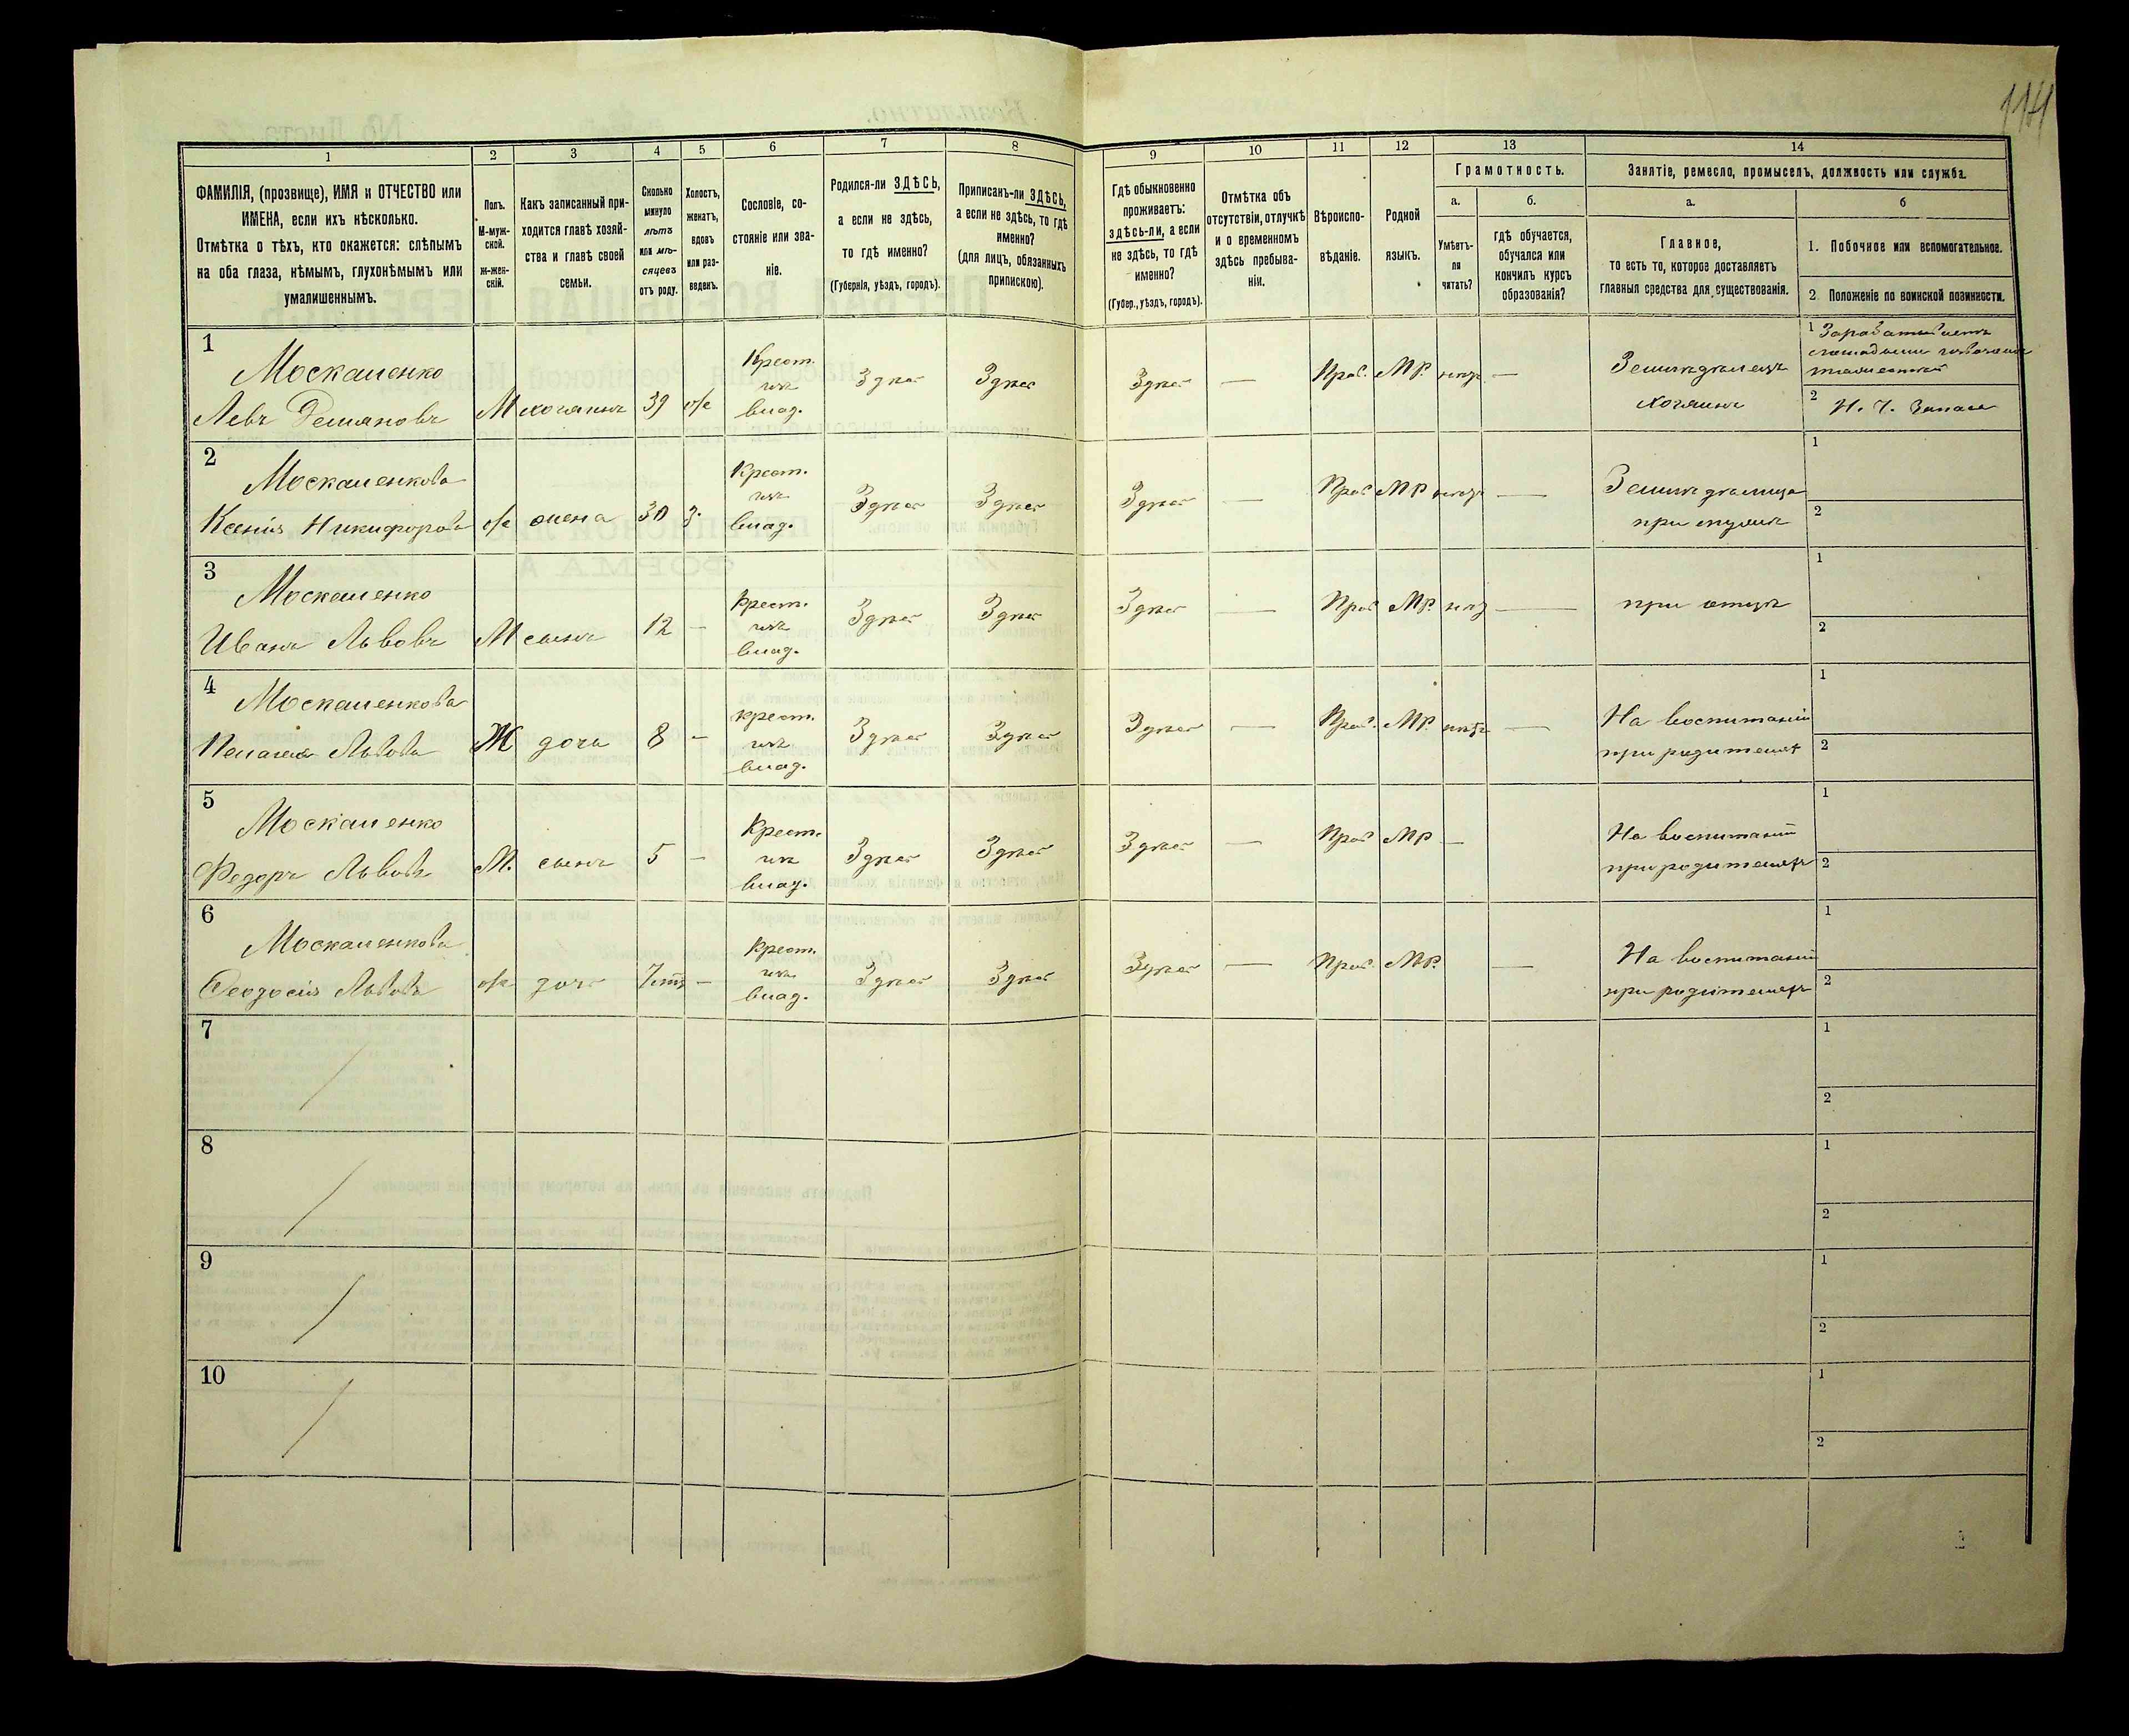 114
1 2 3 4 5 6 7 8 9 10 11 12 13 14
ФАМИЛІЯ, (прозвище), ИМЯ и ОТЧЕСТВО или
ИМЕНА, если ихъ нѣсколько.
Отмѣтка о тѣхъ, кто окажется: слѣпымъ
на оба глаза, нѣмымъ, глухонѣмымъ или
умалишеннымъ.
Полъ.
М-муж-
ской.
Ж-жен-
скій.
Какъ записанный при-
ходится главѣ хозяй-
ства и главѣ своей
семьи.
Сколько
минуло
лѣтъ
или мѣ-
сяцевъ
отъ роду.
Холостъ,
женатъ,
вдовъ
или раз-
веденъ.
Сословіе, со-
стояніе или зва-
ніе.
Родился-ли ЗДѢСЬ,
а если не здѣсь,
то гдѣ именно?
(Губернія, уѣздъ, городъ).
Приписанъ-ли ЗДѢСЬ,
а если не здѣсь, то гдѣ
именно?
(для лицъ, обязанныхъ
припискою).
Гдѣ обыкновенно
проживаетъ:
здѣсь-ли, а если
не здѣсь, то гдѣ
именно?
(Губер., уѣздъ, городъ).
Отмѣтка объ
отсутствіи, отлучкѣ
и о временномъ
здѣсь пребыва-
ніи.
Вѣроиспо-
вѣданіе.
Родной
языкъ.
Грамотность.
а.
Умѣетъ-
ли
читать?
б.
гдѣ обучается,
обучался или
кончилъ курсъ
образованія?
Занятіе, ремесло, промыселъ, должность или служба.
а.
Главное,
то есть то, которое доставляетъ
главныя средства для существованія.
б
1. Побочное или вспомогательное.
2. Положеніе по воинской повинности.
1
Москаленко
Левъ Демяновъ
М хозяинъ 39 ж
Крест.
изъ
влад.
Здѣсь Здѣсь Здѣсь — Прав. МР. нѣтъ —
Земледѣлецъ
хозяинъ
1
2 Н. Ч. Запаса
2
Москаленкова
Ксенія Никифорова ж жена 30 з.
Крест.
изъ
влад.
Здѣсь Здѣсь Здѣсь — Прав МР нѣтъ —
Земледѣлица
при мужѣ
1
2
3
Москаленко
Иванъ Львовъ М сынъ 12 —
Крест.
изъ
влад.
Здѣсь Здѣсь Здѣсь — Прав МР. нѣтъ —
при отцѣ
1
2
4
Москаленкова
Пелагея Львова Ж дочь 8 —
крест.
изъ
влад.
Здѣсь Здѣсь Здѣсь — Прав. МР. нѣтъ —
На воспитаніи
при родителяхъ
1
2
5
Москаленко
Федоръ Львовъ М. сынъ 5 —
Крест.
изъ
влад.
Здѣсь Здѣсь Здѣсь — Прав МР —
На воспитаніи
при родителяхъ
1
2
6
Москаленкова
Феодосія Львова ж дочь —
Крест.
изъ
влад.
Здѣсь Здѣсь Здѣсь — Прав. МР. —
На воспитаніи
при родителяхъ
1
2
7
1
2
8
1
2
9
1
2
10
1
2